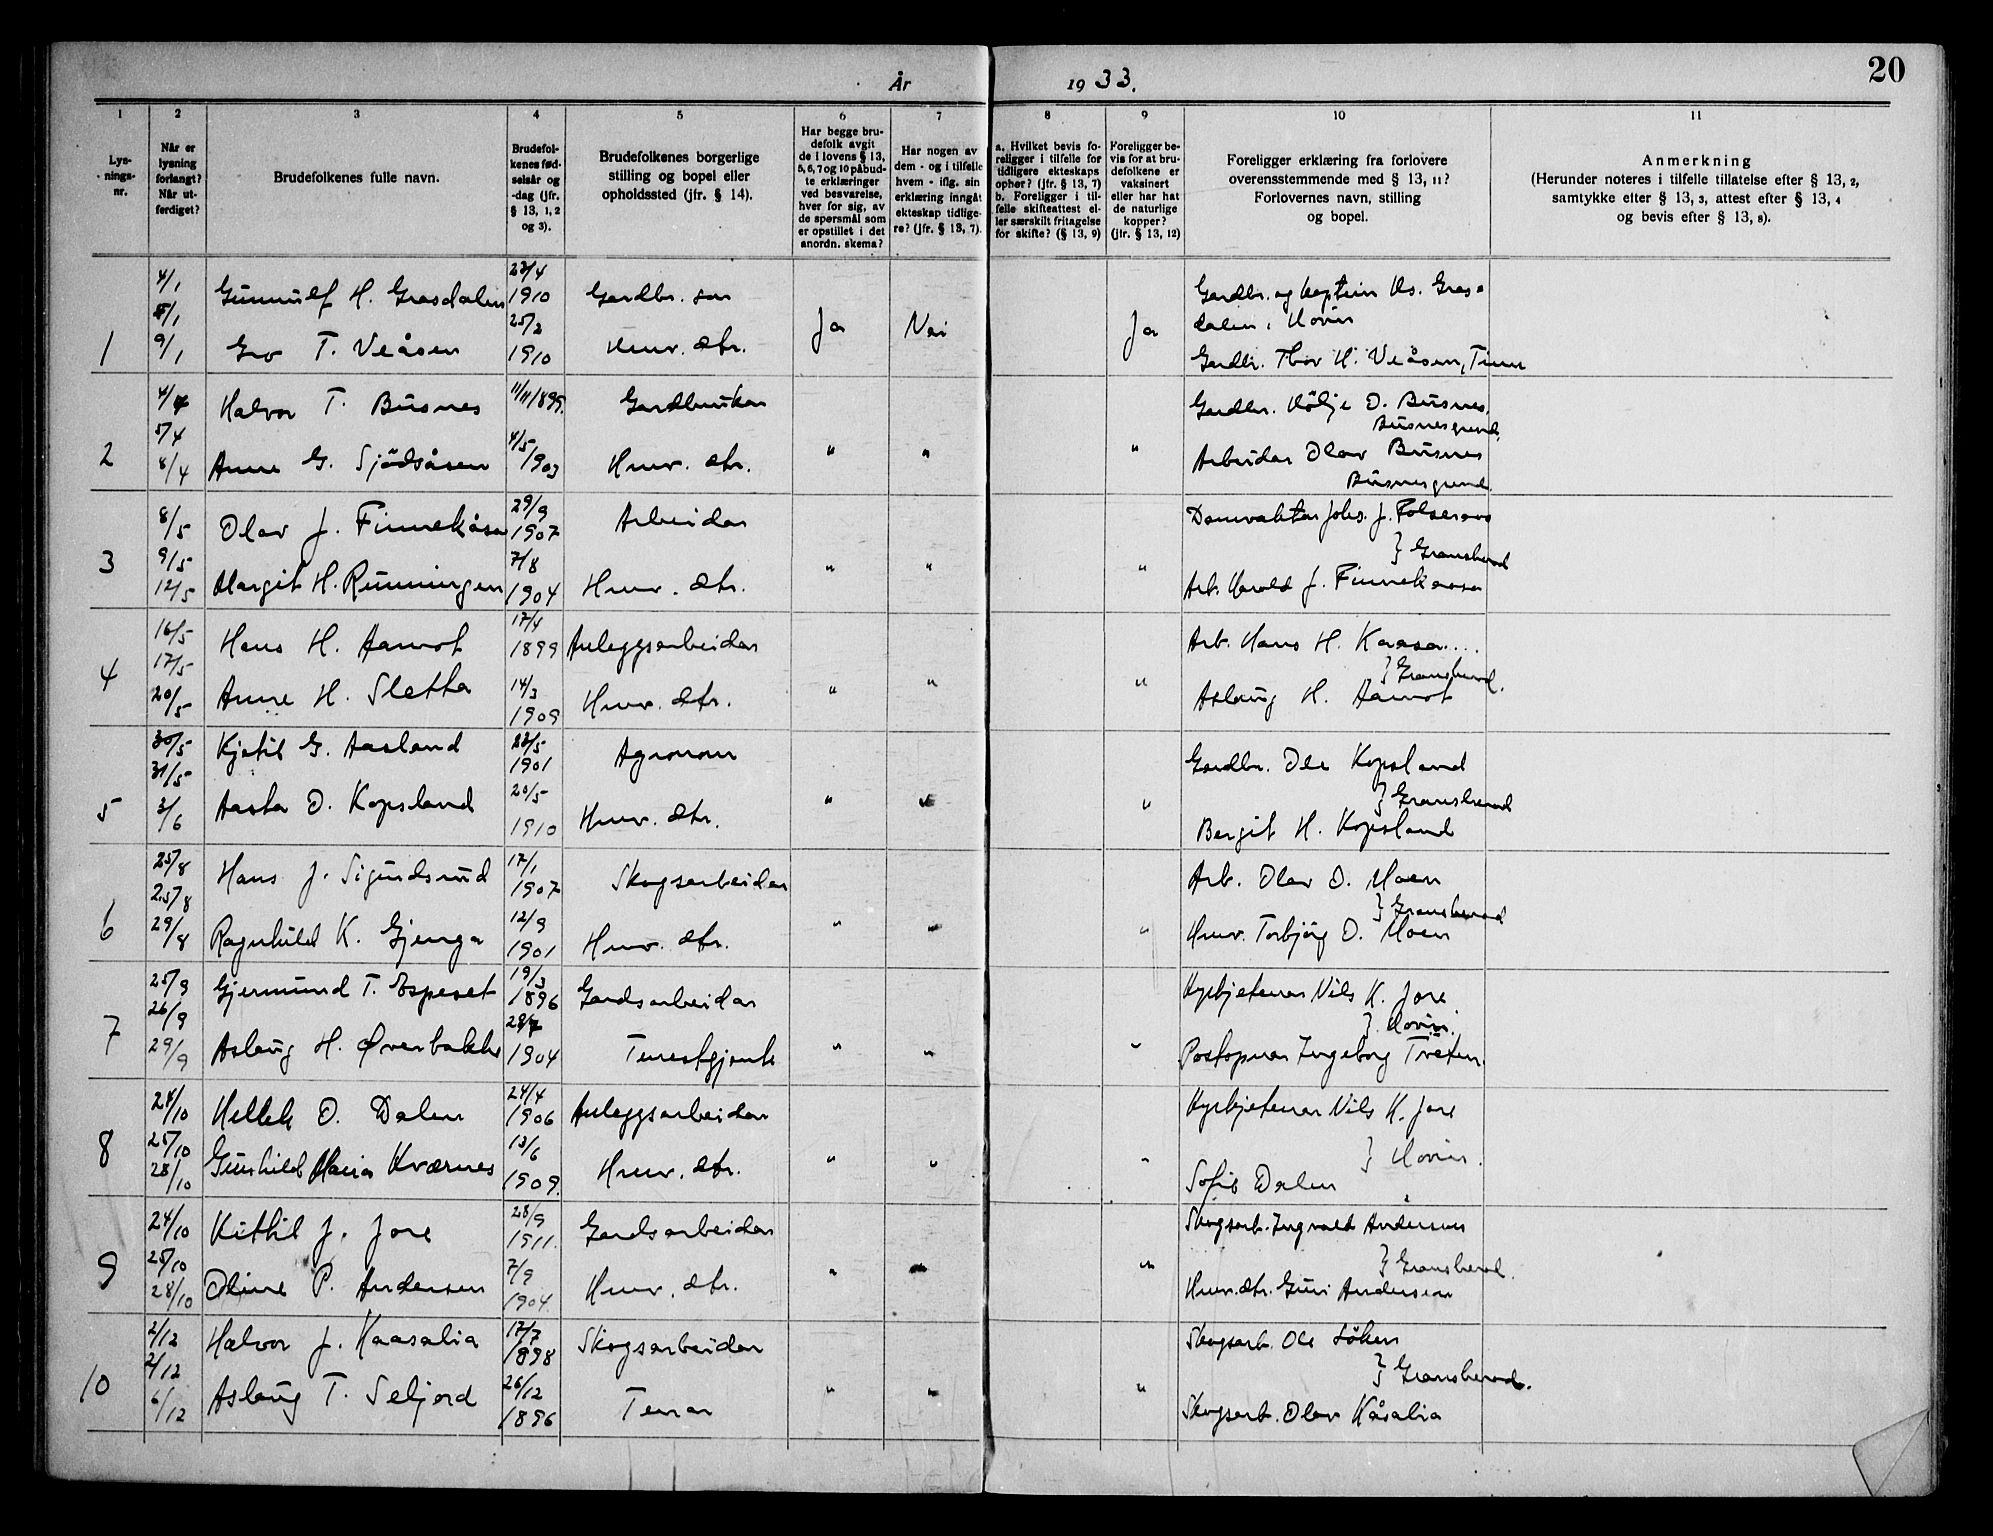 År 1933.
20
1 2 3 4 5 6 7 8 9 10 11
Lys-
nings-
nr.
Når er
lysning
forlangt?
Når ut-
ferdiget?
Brudefolkenes fulle navn.
Brudefol-
kenes fød-
selsår og
-dag (jfr.
§ 13, 1, 2
og 3).
Brudefolkenes borgerlige
stilling og bopel eller
opholdssted (jfr. § 14).
Har begge bru-
defolk avgit
de i lovens § 13,
5, 6, 7 og 10 påbud-
te erklæringer
ved besvarelse,
hver for sig, av
de spørsmål som
er opstillet i det
anordn. skema?
Har nogen av
dem - og i tilfelle
hvem - iflg. sin
erklæring inngåt
ekteskap tidlige-
re? (jfr. § 13, 7).
a. Hvilket bevis fo-
religger i tilfelle for
tidligere ekteskaps
ophør? (jfr. § 13, 7)
b. Foreligger i til-
felle skifteattest el-
ler særskilt fritagelse
for skifte? (§ 13, 9)
Foreligger be-
vis for at bru-
defolkene er
vaksinert
eller har hat
de naturlige
kopper?
(jfr. § 13, 12)
Foreligger erklæring fra forlovere
overensstemmende med § 13, 11?
Forlovernes navn, stilling
og bopel.
Anmerkning
(Herunder noteres i tilfelle tillatelse efter § 13, 2,
samtykke efter § 13, 3, attest efter § 13, 4
og bevis efter § 13, 8).
1
4/1
5/1
9/1
Gunnulf H. Grasdalen
23/4
1910
Gardbr. son
Gro T. Veåsen
25/2
1910
Husv. dtr.
Ja
Nei
Ja
Gardbr. og kaptein Hs. Gras-
dalen, Hovin
Gardbr. Thor H. Veåsen, Tinn
2
4/4
5/4
8/4
Halvor T. Busnes
11/11 1899.
Gardbrukar
Anne G. Sjödsåsen
4/5
1903
Husv. dtr.
" " "
Gardbr. Kölje O. Busnes,
Busnesgrend,
Arbeidar Olav Busnes
Busnesgrend.
3
8/5
9/5
12/5
Olav J. Finnekåsa
29/9
1907
Arbeidar
Margit H. Runningen
7/8
1904
Husv. dtr.
" " "
Damvaktar Johs. J.
} Gransherad
Arb. Harald J. Finnekaasa
4
16/5
17/5
20/5
Hans H. Aamot
17/4
1899
Anleggsarbeidar
Anne H. Sletta
14/3
1909
Husv. dtr.
" " "
Arb. Hans H. Kaasa....
} Gransherad.
Aslaug H. Aamot
5
30/5
31/5
3/6
Kjetil G. Aasland
23/5
1901
Agronom
Aasta O. Kopsland
20/5
1910
Husv. dtr.
" " "
Gardbr. Ole Kopsland
} Gransherad
Bergit H. Kopsland
6
25/8
25/8
29/8
Hans J. Sigurdsrud
17/1
1907
Skogsarbeidar
Ragnhild K. Gjenga
12/9
1901
Husv. dtr.
" " "
Arb. Olav O. Moen
} Gransherad
Husv. Torbjörg O. Moen
7
25/9
26/9
29/9
Gjermund T. Espeset
19/3
1896
Gardsarbeidar
Aslaug H. Øverbakke
28/7
1904
Tenestgjente
" " "
Kyrkjetenar Nils K. Jore
} Hovin.
Postopnar Ingeborg Tveten.
8
24/10
25/10
28/10
Hellek O. Dalen
24/4
1906
Anleggsarbeidar
Gunhild Maria Kværnes
13/6
1909.
Husv. dtr.
" " "
Kyrkjetenar Nils K. Jore
} Hovin.
Sofie Dalen
9
24/10
25/10
28/10
Kittil J. Jore
28/9
1911.
Gardsarbeidar
Oline P. Andersen
7/9
1904.
Husv. dtr.
" " "
Skogsarb. Ingvald Andersen
} Gransherad.
Husv. dtr. Guri Andersen
10
2/12
2/12
6/12
Halvor J. Kaasalia
17/7
1898
Skogsarbeidar
Aslaug T. Seljord
26/12
1896
Tenar
" " "
Skogsarb. Ole Löken
} Gransherad.
Skogsarb. Olav Kåsalia